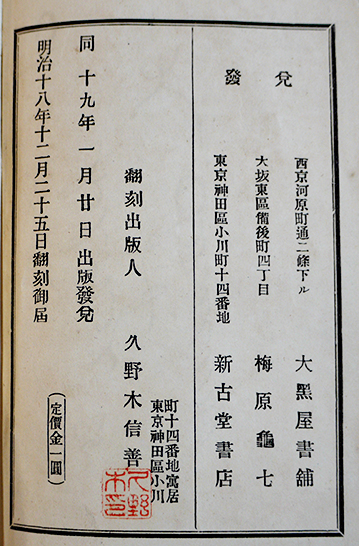 明治十八年十二月二十五日翻刻御届
定價金一圓
同十九年一月廿日出版發兌
翻刻出版人 久野木信善
東京神田區小川
町十四番地寓居
久野
木印
發兌
東京神田區小川町十四番地 新古堂書店
大坂東區備後町四丁目 梅原龜七
西京河原町通二條下ル 大黑屋書舖